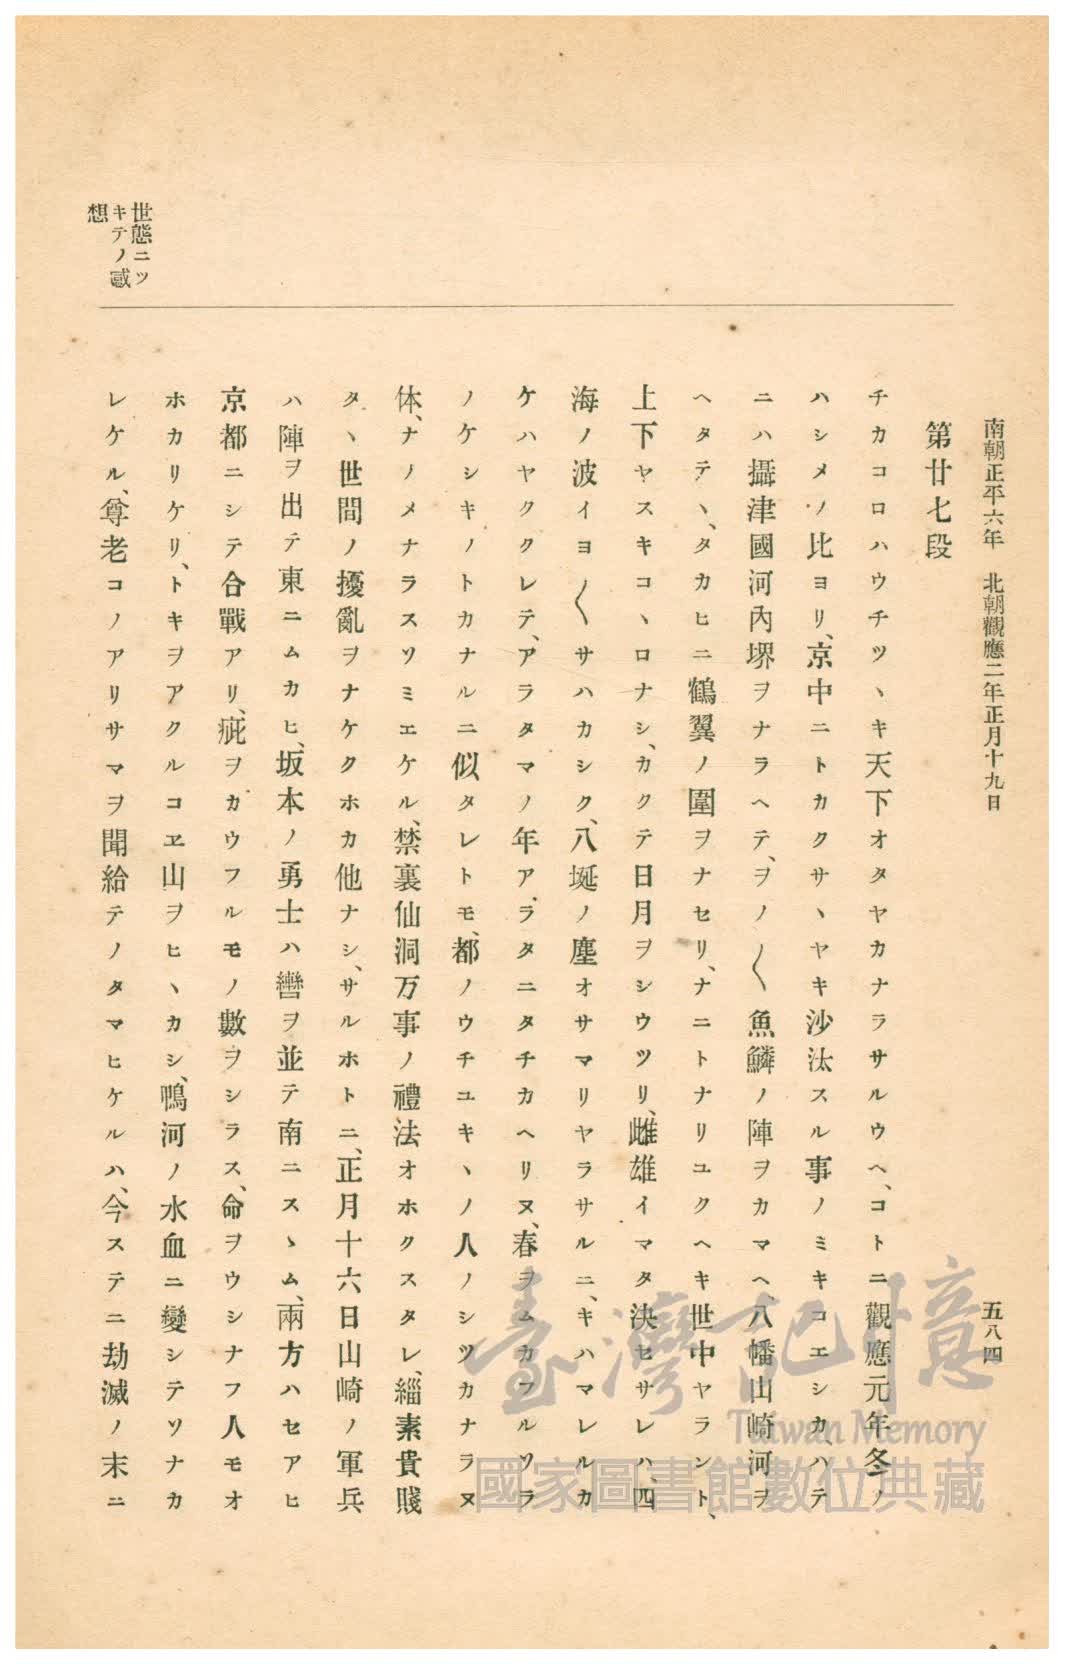 南朝正平六年　北朝觀應二年正月十九日
五八四
第廿七段
チカコロハウチツヽキ天下オタヤカナラサルウヘ、コトニ觀應元年冬ノ
ハシメノ比ヨリ、京中ニトカクサヽヤキ沙汰スル事ノミキコエシカ、ハテ
ニハ攝津國河內堺ヲナラヘテ、ヲノ〱魚鱗ノ陣ヲカマヘ、八幡山崎河ヲ
ヘタテヽ、タカヒニ鶴翼ノ圍ヲナセリ、ナニトナリユクヘキ世中ヤラント、
上下ヤスキコヽロナシ、カクテ日月ヲシウツリ、雌雄イマタ決セサレハ、四
海ノ波イヨ〱サハカシク、八埏ノ塵オサマリヤラサルニ、キハマレルカ
ケハヤククレテ、アラタマノ年ア、ラタニタチカヘリヌ、春ヲムカフルソラ
ノケシキノトカナルニ似タレトモ、都ノウチユキヽノ人ノシツカナラヌ
体、ナノメナラスソミエケル、禁裏仙洞万事ノ禮法オホクスタレ、緇素貴賤
タヽ世間ノ擾亂ヲナケクホカ他ナシ、サルホトニ、正月十六日山崎ノ軍兵
ハ陣ヲ出テ東ニムカヒ、坂本ノ勇士ハ轡ヲ並テ南ニスヽム、兩方ハセアヒ
京都ニシテ合戰アリ、疵ヲカウフルモノ數ヲシラス、命ヲウシナフ人モオ
ホカリケリ、トキヲアクルコヱ山ヲヒヽカシ、鴨河ノ水血ニ變シテソナカ
レケル、尊老コノアリサマヲ聞給テノタマヒケルハ、今ステニ劫滅ノ末ニ
世態ニツ
キテノ感
想
臺灣記憶
Taiwan Memory
國家圖書館數位典藏